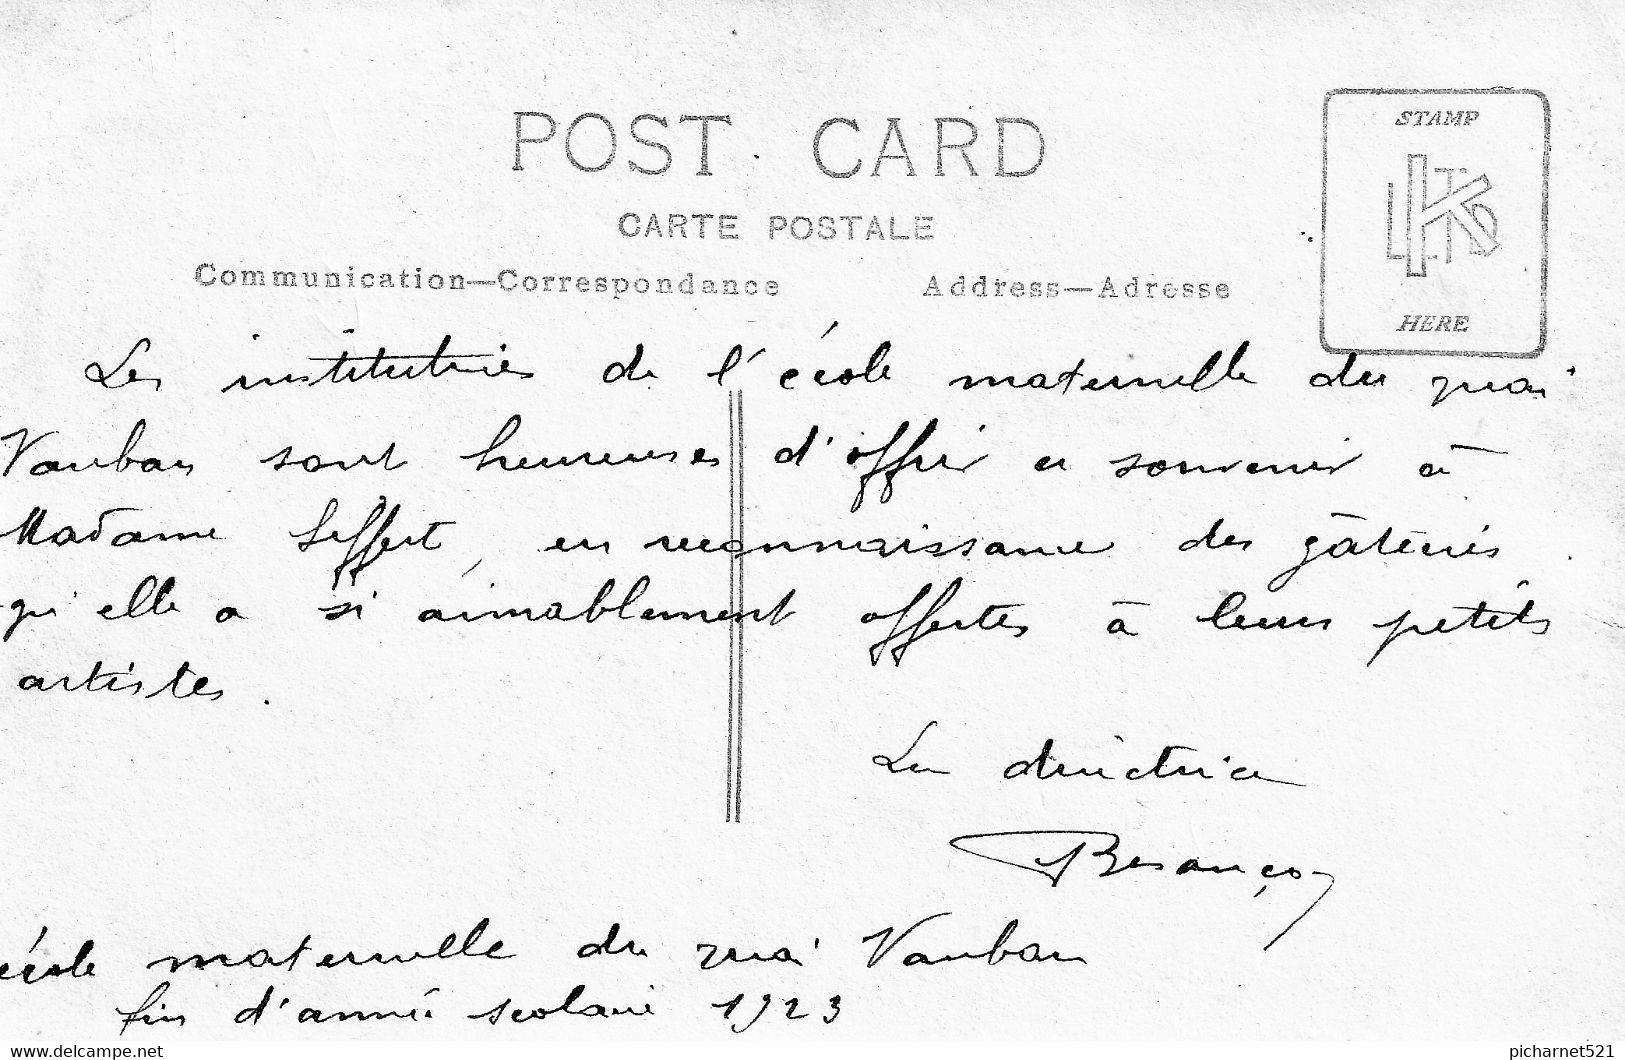 POST CARD
CARTE POSTALE
Communication—Correspondance
Address—Adresse
STAMP
LTD
K
HERE
Les institutrices de l'école maternelle du quai
Vauban sont heureuses d'offrir ce souvenir à
Madame Seffert, en reconnaissance des gâteries
qu'elle a si aimablement offertes à leurs petits
artistes.
La directrice
Besançon
école maternelle du quai Vauban
fin d'année scolaire 1923
www.delcampe.net
picharnet521